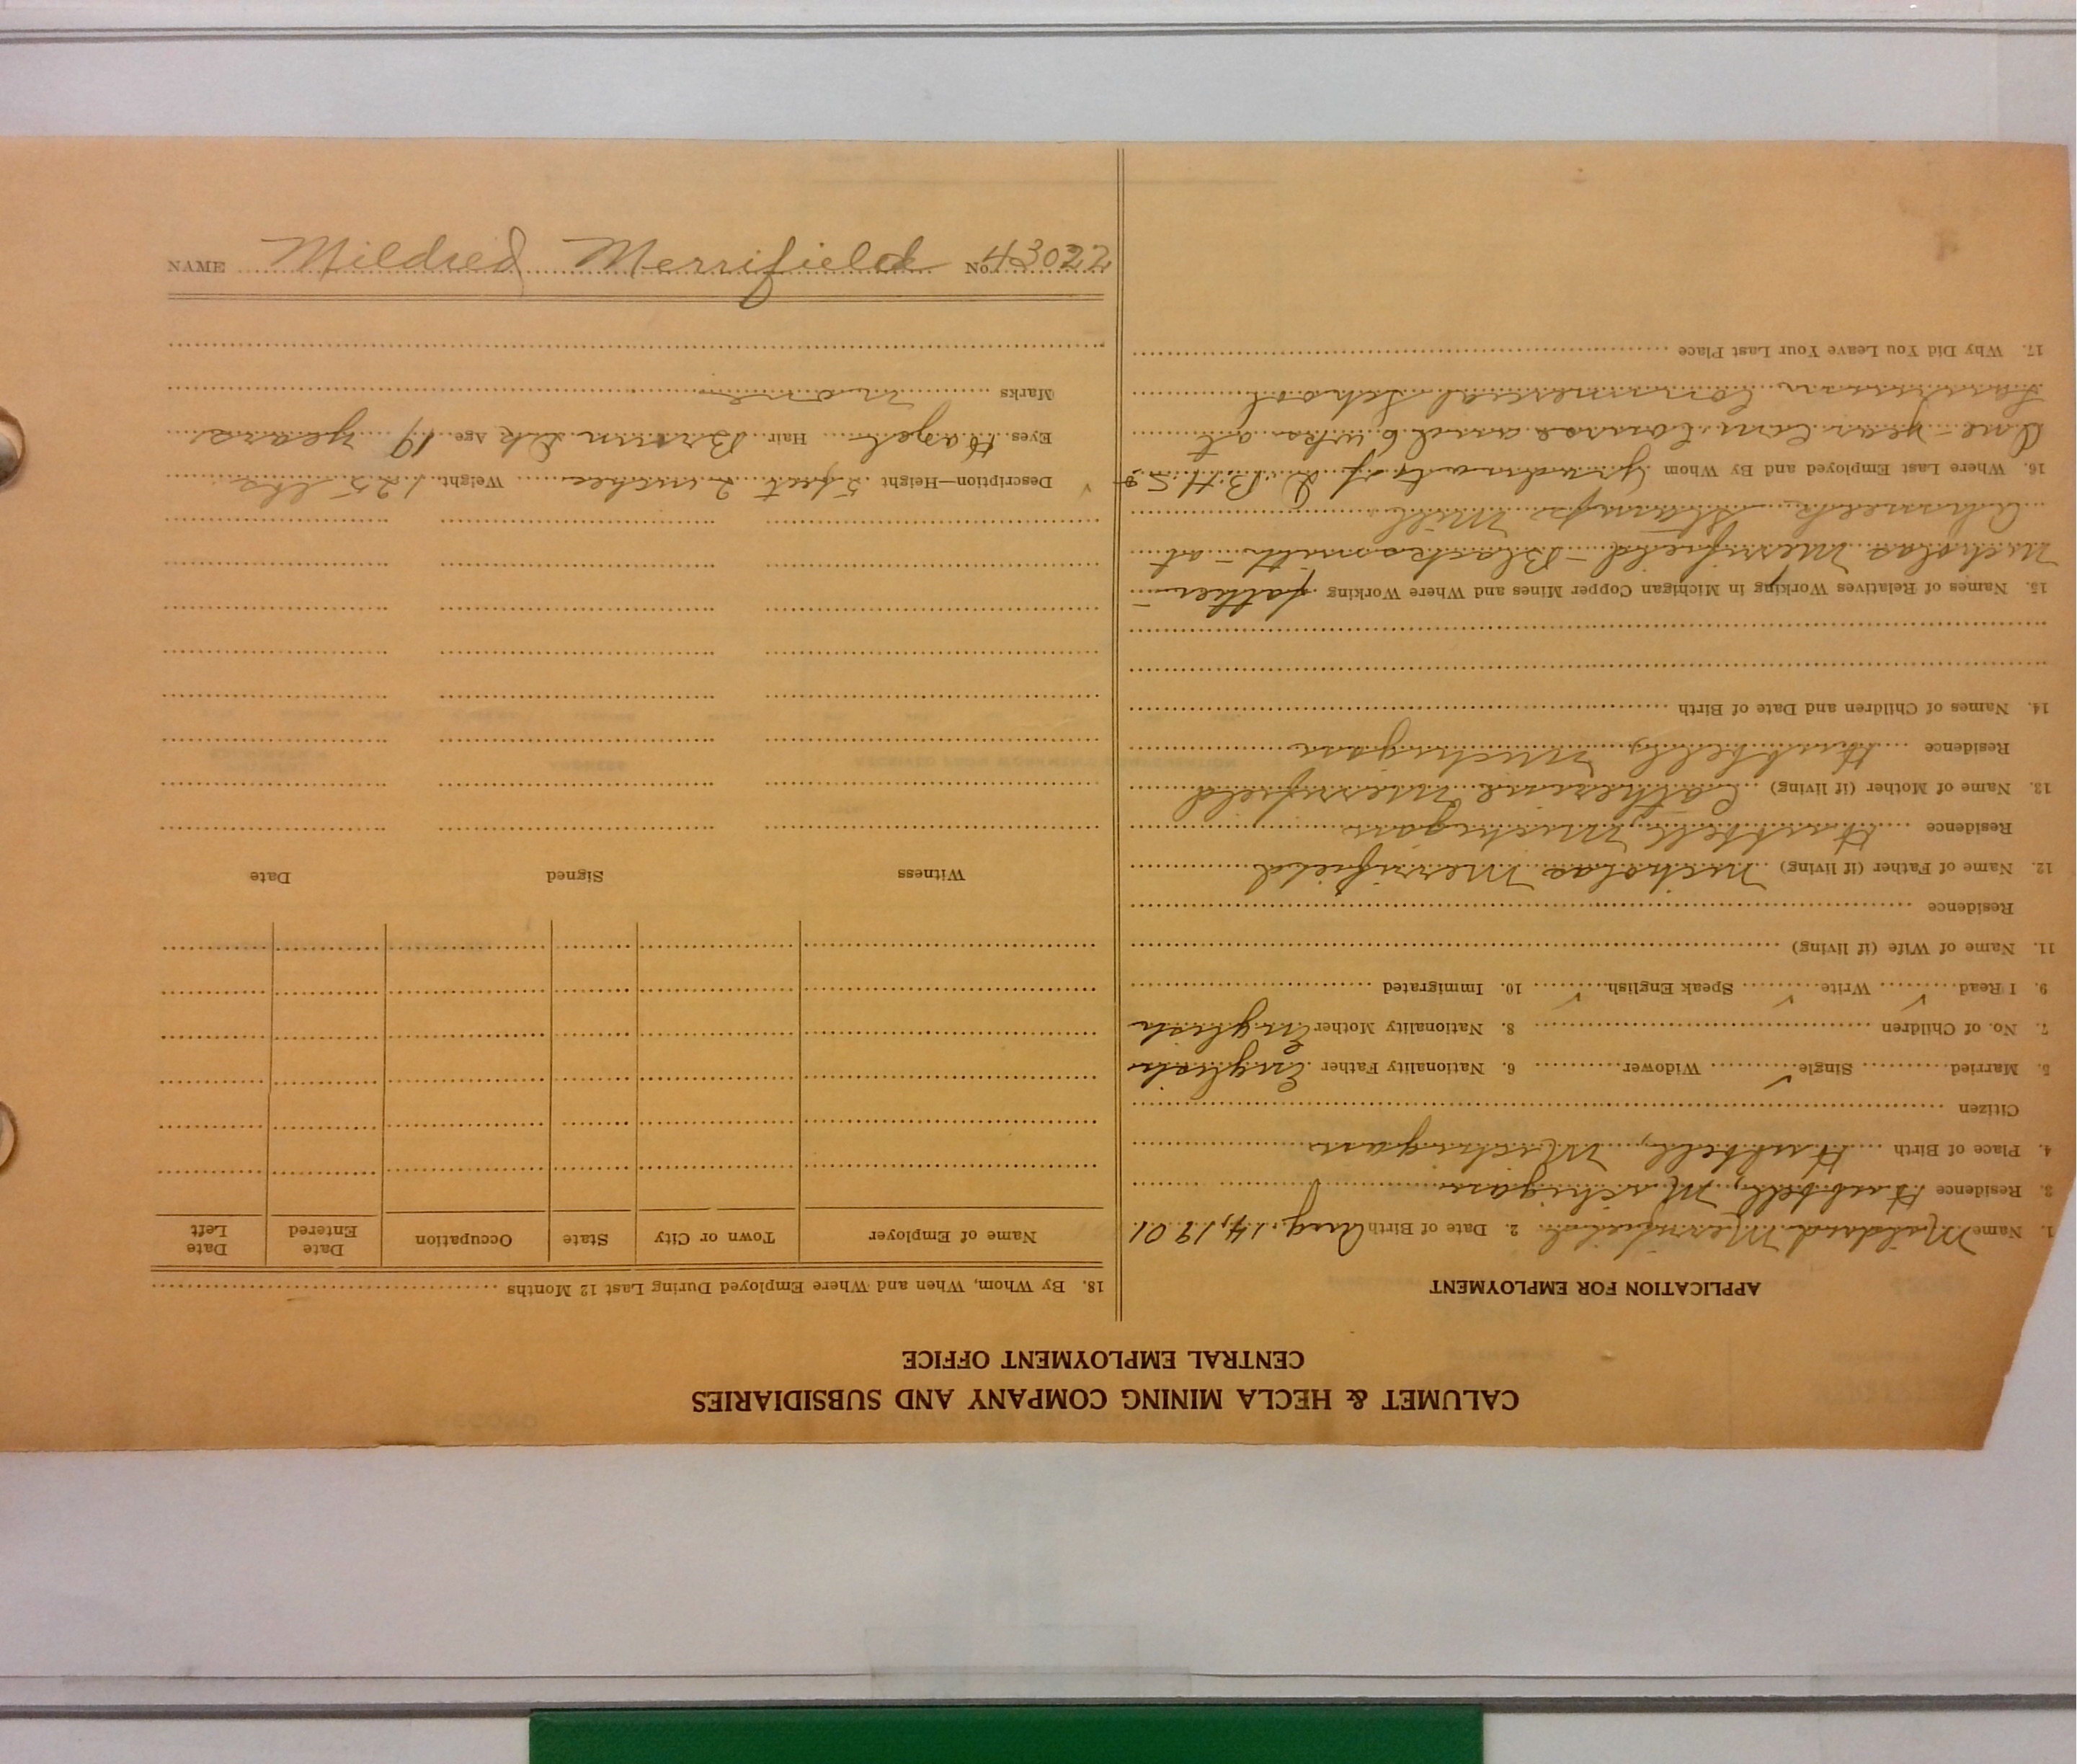 CALUMET & HECLA MINING COMPANY AND SUBSIDIARIES
CENTRAL EMPLOYMENT OFFICE
APPLICATION FOR EMPLOYMENT
1. Name Mildred Merrifield 2. Date of Birth Aug. 14, 1901
3. Residence Hubbell, Michigan
4. Place of Birth Hubbell, Michigan
Citizen
5. Married Single ✓ Widower 6. Nationality Father English
7. No. of Children 8. Nationality Mother English
9. I Read ✓ Write ✓ Speak English ✓ 10. Immigrated
11. Name of Wife (if living)
Residence
12. Name of Father (if living) Nicholas Merrifield
Residence Hubbell, Michigan
13. Name of Mother (if living) Catherine Merrifield
Residence Hubbell, Michigan
14. Names of Children and Date of Birth
15. Names of Relatives Working in Michigan Copper Mines and Where Working father -
Nicholas Merrifield - Blacksmith - at
Ahmeek Stamp Mill
16. Where Last Employed and By Whom Graduate of B.H.S.
One - year Com. Course and 6 wks. at
Laurium Commercial School
17. Why Did You Leave Your Last Place
18. By Whom, When and Where Employed During Last 12 Months
Name of Employer Town or City State Occupation Date Entered Date Left
Witness Signed Date
Description—Height 5 feet 2 inches Weight 125 lbs
Eyes Hazel Hair Brown Dk Age 19 years
Marks none
NAME Mildred Merrifield No. 43022